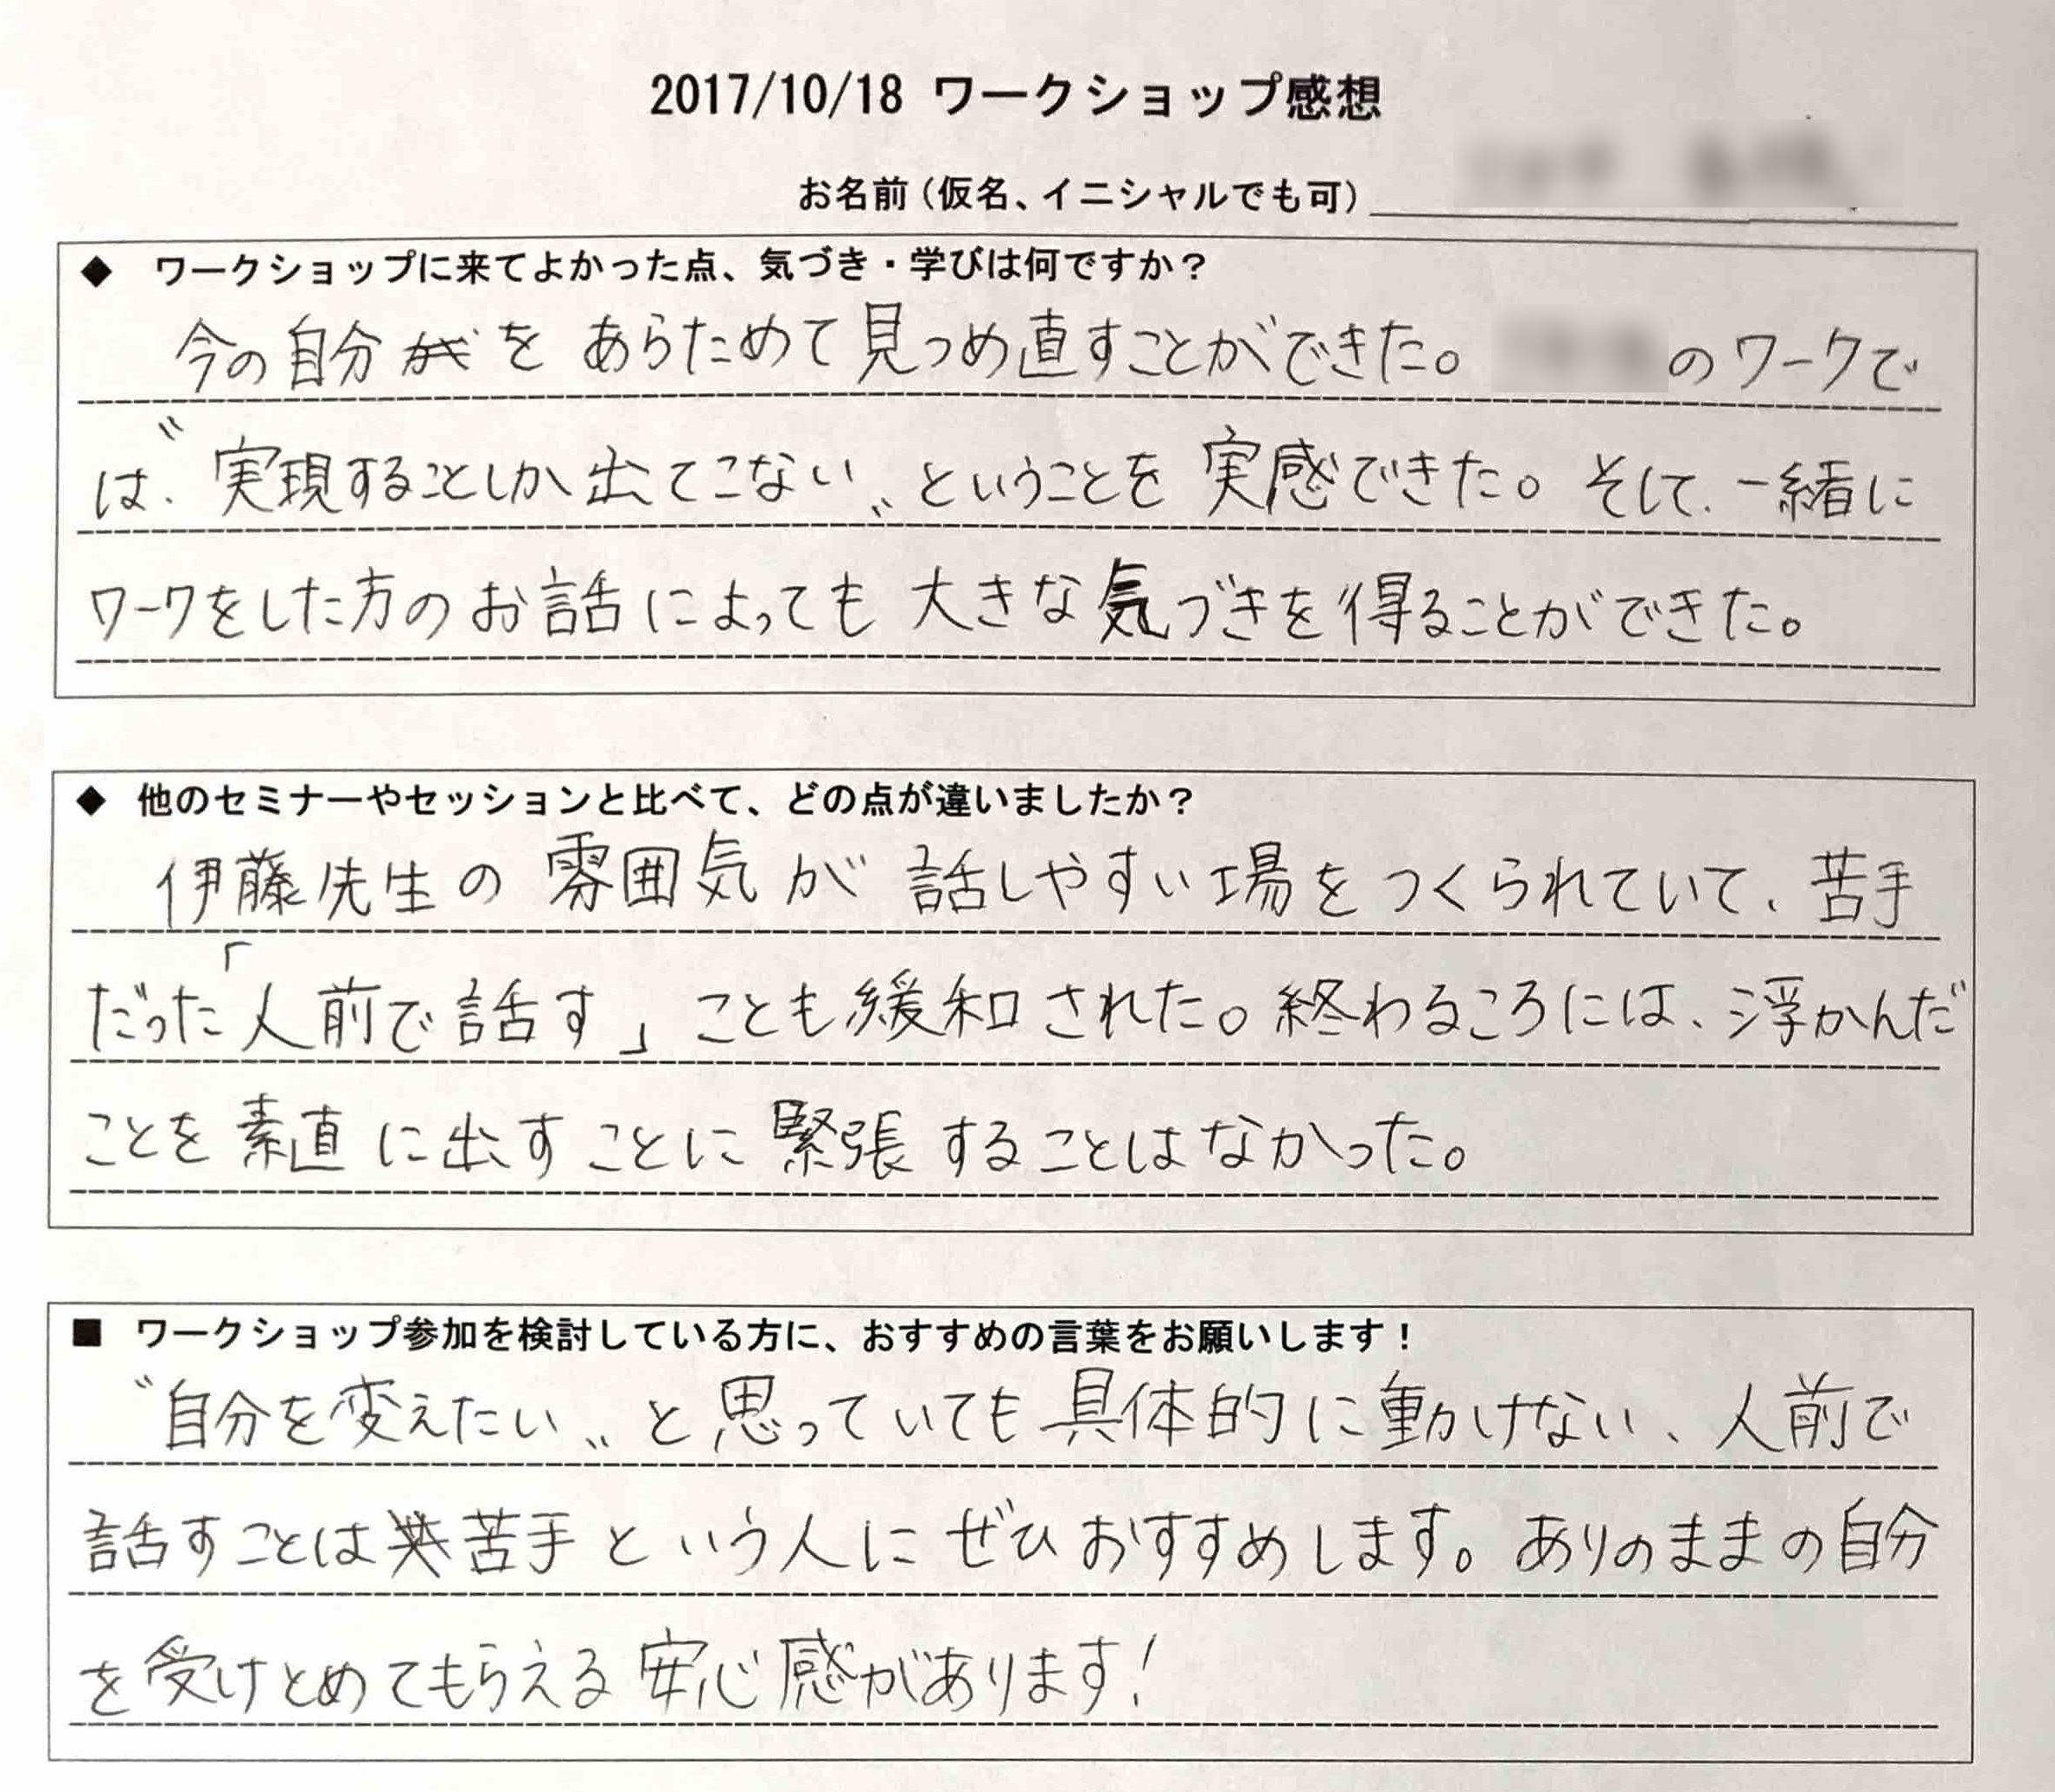 2017/10/18 ワークショップ感想
お名前(仮名、イニシャルでも可)
◆ ワークショップに来てよかった点、気づき・学びは何ですか?
今の自分をあらためて見つめ直すことができた。のワークで
は、〝実現することしか出てこない〟ということを実感できた。そして、一緒に
ワークをした方のお話によっても大きな気づきを得ることができた。
◆ 他のセミナーやセッションと比べて、どの点が違いましたか?
伊藤先生の雰囲気が話しやすい場をつくられていて、苦手
だった「人前で話す」ことも緩和された。終わるころには、浮かんだ
ことを素直に出すことに緊張することはなかった。
■ ワークショップ参加を検討している方に、おすすめの言葉をお願いします!
〝自分を変えたい〟と思っていても具体的に動けない、人前で
話すことは苦手という人にぜひおすすめします。ありのままの自分
を受けとめてもらえる安心感があります!